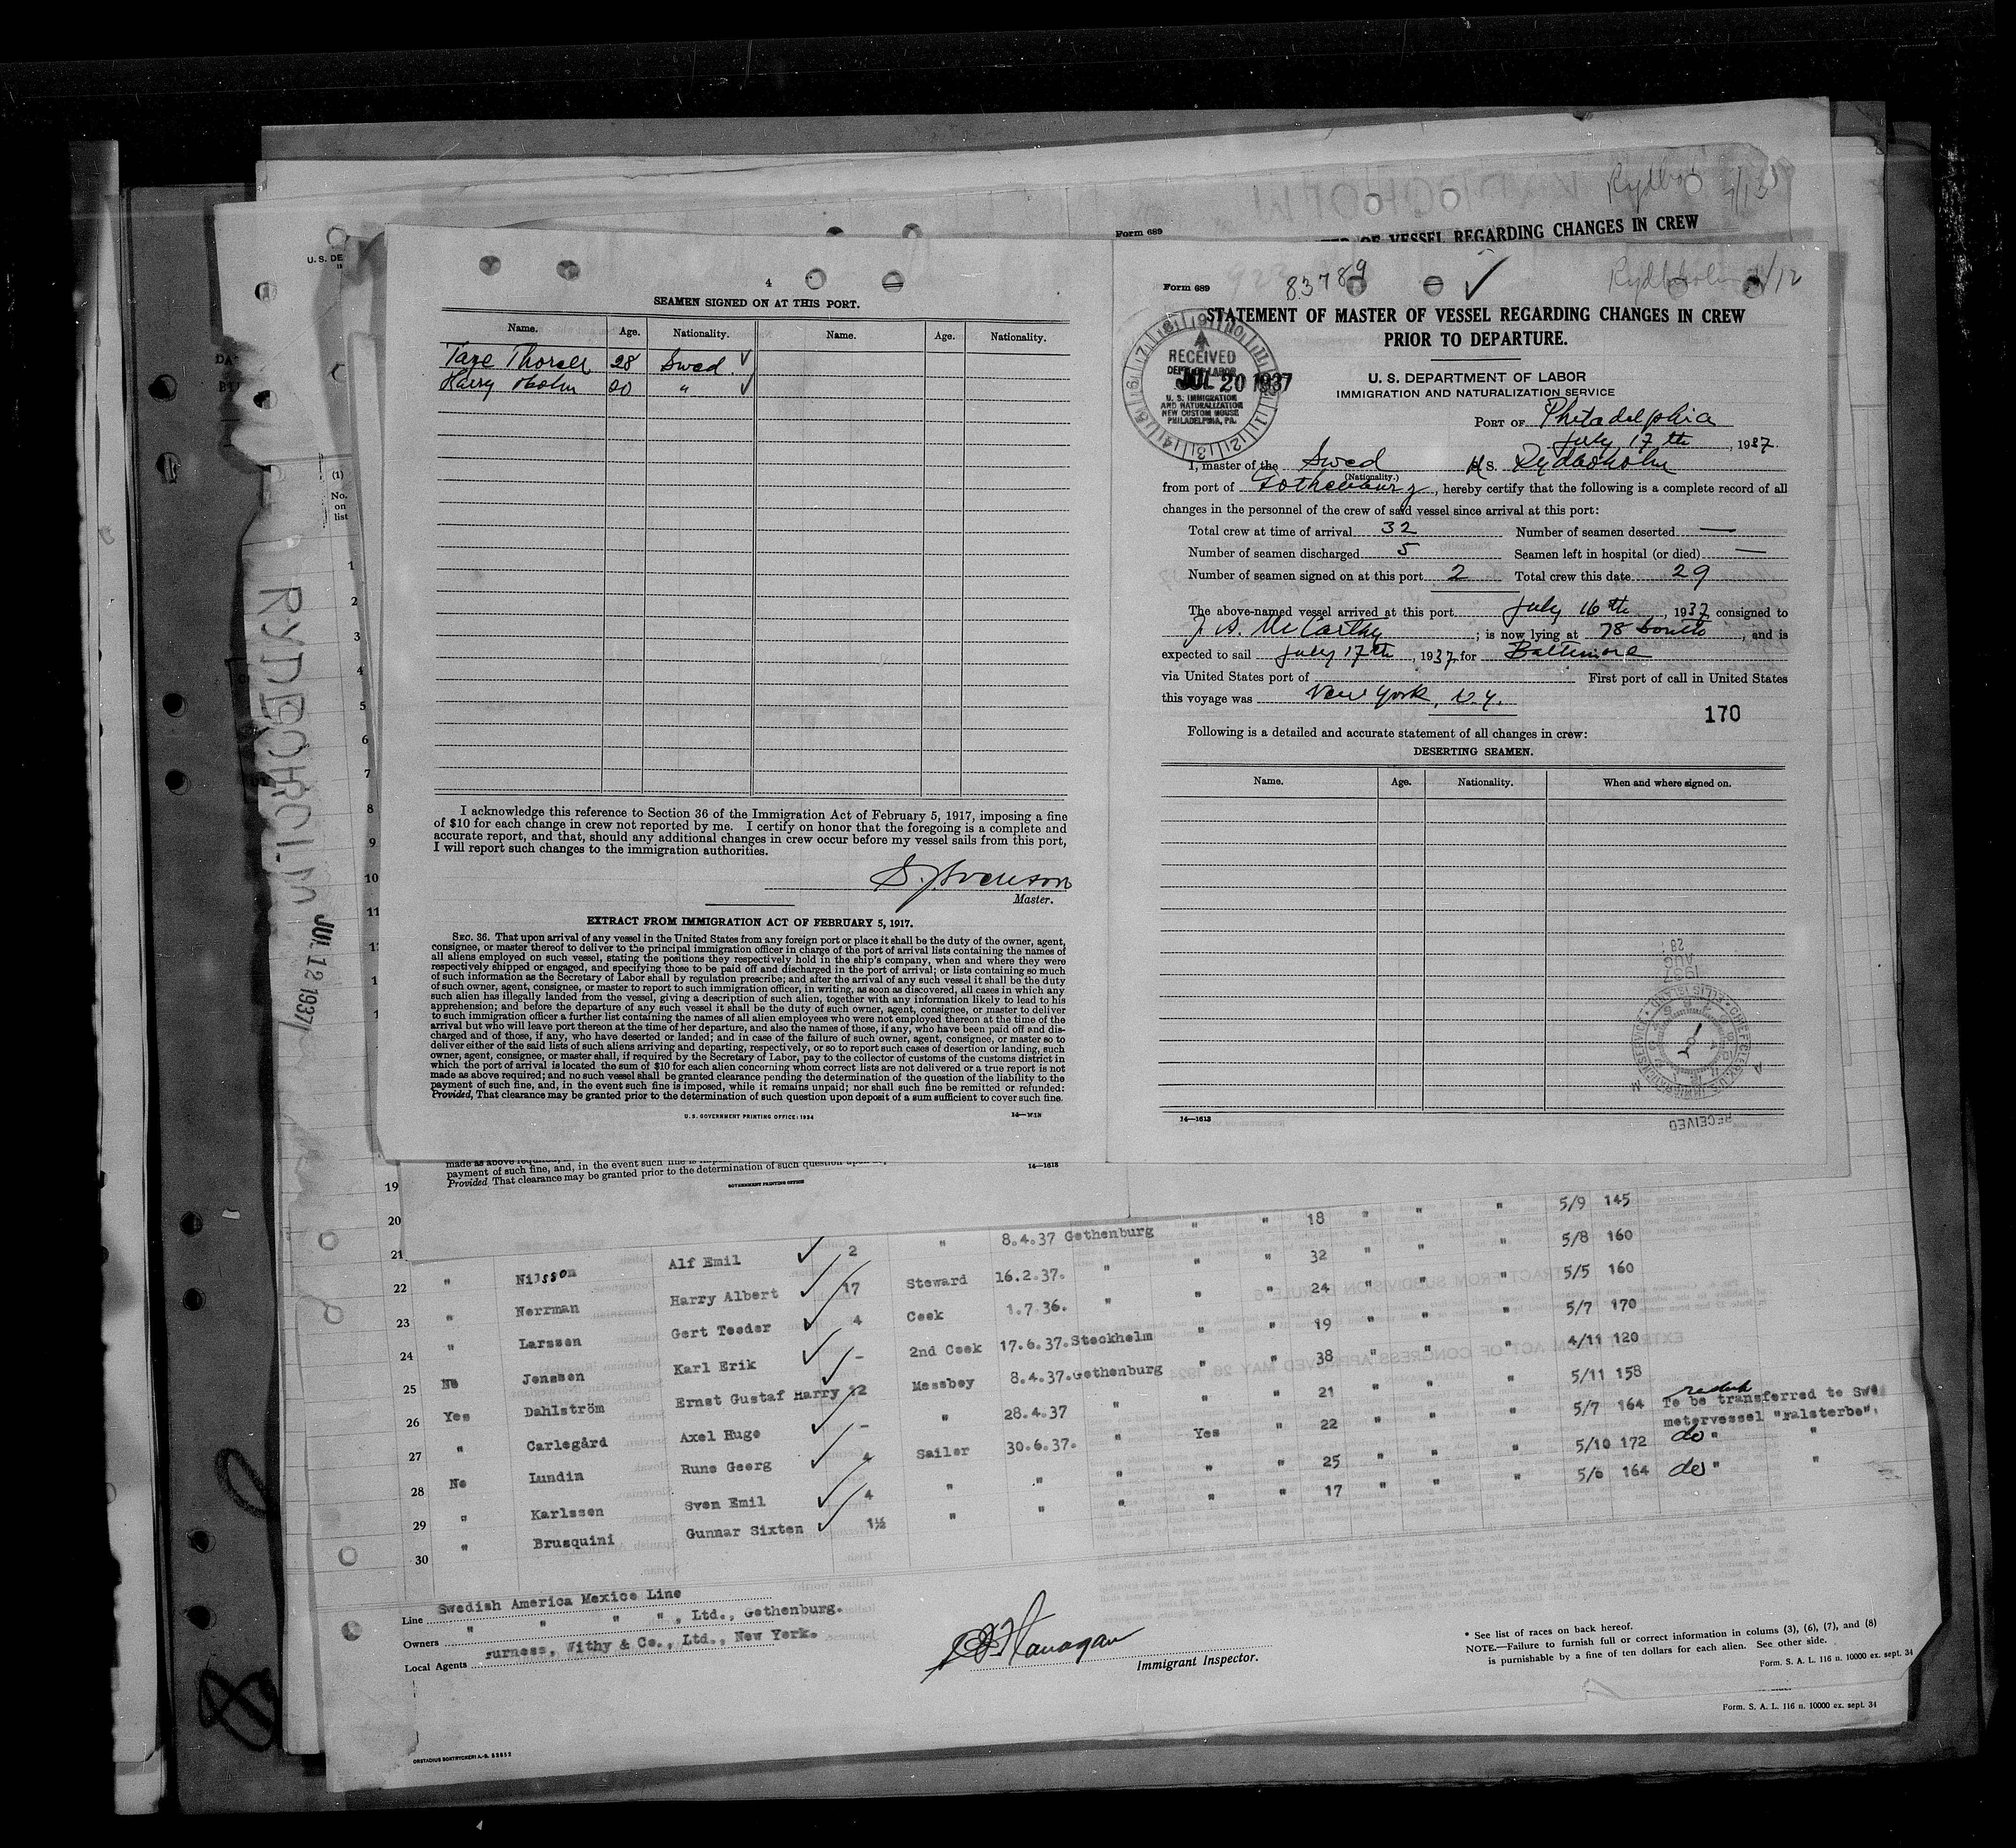 Form 689
OF VESSEL REGARDING CHANGES IN CREW
4
SEAMEN SIGNED ON AT THIS PORT.
Name. Age. Nationality. Name. Age. Nationality.
28 Swed.
Harry "
I acknowledge this reference to Section 36 of the Immigration Act of February 5, 1917, imposing a fine
of $10 for each change in crew not reported by me. I certify on honor that the foregoing is a complete and
accurate report, and that, should any additional changes in crew occur before my vessel sails from this port,
I will report such changes to the immigration authorities.
Master.
EXTRACT FROM IMMIGRATION ACT OF FEBRUARY 5, 1917.
SEC. 36. That upon arrival of any vessel in the United States from any foreign port or place it shall be the duty of the owner, agent,
consignee, or master thereof to deliver to the principal immigration officer in charge of the port of arrival lists containing the names of
all aliens employed on such vessel, stating the positions they respectively hold in the ship's company, when and where they were
respectively shipped or engaged, and specifying those to be paid off and discharged in the port of arrival; or lists containing so much
of such information as the Secretary of Labor shall by regulation prescribe; and after the arrival of any such vessel it shall be the duty
of such owner, agent, consignee, or master to report to such immigration officer, in writing, as soon as discovered, all cases in which any
such alien has illegally landed from the vessel, giving a description of such alien, together with any information likely to lead to his
apprehension; and before the departure of any such vessel it shall be the duty of such owner, agent, consignee, or master to deliver
to such immigration officer a further list containing the names of all alien employees who were not employed thereon at the time of the
arrival but who will leave port thereon at the time of her departure, and also the names of those, if any, who have been paid off and dis-
charged and of those, if any, who have deserted or landed; and in case of the failure of such owner, agent, consignee, or master so to
deliver either of the said lists of such aliens arriving and departing, respectively, or so to report such cases of desertion or landing, such
owner, agent, consignee, or master shall, if required by the Secretary of Labor, pay to the collector of customs of the customs district in
which the port of arrival is located the sum of $10 for each alien concerning whom correct lists are not delivered or a true report is not
made as above required; and no such vessel shall be granted clearance pending the determination of the question of the liability to the
payment of such fine, and, in the event such fine is imposed, while it remains unpaid; nor shall such fine be remitted or refunded:
Provided, That clearance may be granted prior to the determination of such question upon deposit of a sum sufficient to cover such fine.
U. S. GOVERNMENT PRINTING OFFICE: 1934
Form 689
83789
STATEMENT OF MASTER OF VESSEL REGARDING CHANGES IN CREW
PRIOR TO DEPARTURE.
RECEIVED
DEPT. OF LABOR
JUL 20 1937
U. S. IMMIGRATION
AND NATURALIZATION
NEW CUSTOM HOUSE
PHILADELPHIA, PA.
U. S. DEPARTMENT OF LABOR
IMMIGRATION AND NATURALIZATION SERVICE
PORT OF Philadelphia
July 17th, 1937
I, master of the Swed M S. Rydboholm
(Nationality.)
from port of Gothenburg, hereby certify that the following is a complete record of all
changes in the personnel of the crew of said vessel since arrival at this port:
Total crew at time of arrival 32 Number of seamen deserted —
Number of seamen discharged 5 Seamen left in hospital (or died) —
Number of seamen signed on at this port 2 Total crew this date 29
The above-named vessel arrived at this port July 16th, 1937 consigned to
J. A. McCarthy; is now lying at 78 South, and is
expected to sail July 17th, 1937 for Baltimore
via United States port of First port of call in United States
this voyage was New York, N.Y.
170
Following is a detailed and accurate statement of all changes in crew:
DESERTING SEAMEN.
Name. Age. Nationality. When and where signed on.
14—1613
RYDBOHOLM JUL 12 1937
(1)
No.
on
list
1
2
3
4
5
6
7
8
9
10
11
payment of such fine, and, in the event such fine is
Provided, That clearance may be granted prior to the determination of such question
GOVERNMENT PRINTING OFFICE
14—1613
19
20
21 Alf Emil 2 " 8.4.37 Gothenburg " " 18 " " " 5/9 145
22 " Nilsson Harry Albert 17 Steward 16.2.37. " " " 32 " " " 5/8 160
23 " Norrman Gert Teodor 4 Cook 1.7.36. " " " 24 " " " 5/5 160
24 " Larsson Karl Erik – 2nd Cook 17.6.37. Stockholm " " 19 " " " 5/7 170
25 No Jonsson Ernst Gustaf Harry 12 Messboy 8.4.37. Gothenburg " " 38 " " " 4/11 120
26 Yes Dahlström Axel Hugo – " 28.4.37 " " " 21 " " " 5/11 158
27 " Carlegård Rune Georg 4 Sailor 30.6.37. " Yes " 22 " " " 5/7 164 To be transferred to Swe
motorvessel "Falsterbo".
28 No Lundin Sven Emil 4 " " " " " 25 " " " 5/10 172 do " "
29 " Karlsson Gunnar Sixten 1½ " " " " " 17 " " " 5/6 164 do " "
30 " Brusquini
Line Swedish America Mexico Line
Owners " " " ", Ltd., Gothenburg.
Local Agents Furness, Withy & Co., Ltd., New York.
Immigrant Inspector.
* See list of races on back hereof.
NOTE.—Failure to furnish full or correct information in colums (3), (6), (7), and (8)
is punishable by a fine of ten dollars for each alien. See other side.
Form. S. A. L. 116 n. 10000 ex. sept. 34
Form. S. A. L. 116 n. 10000 ex. sept. 34